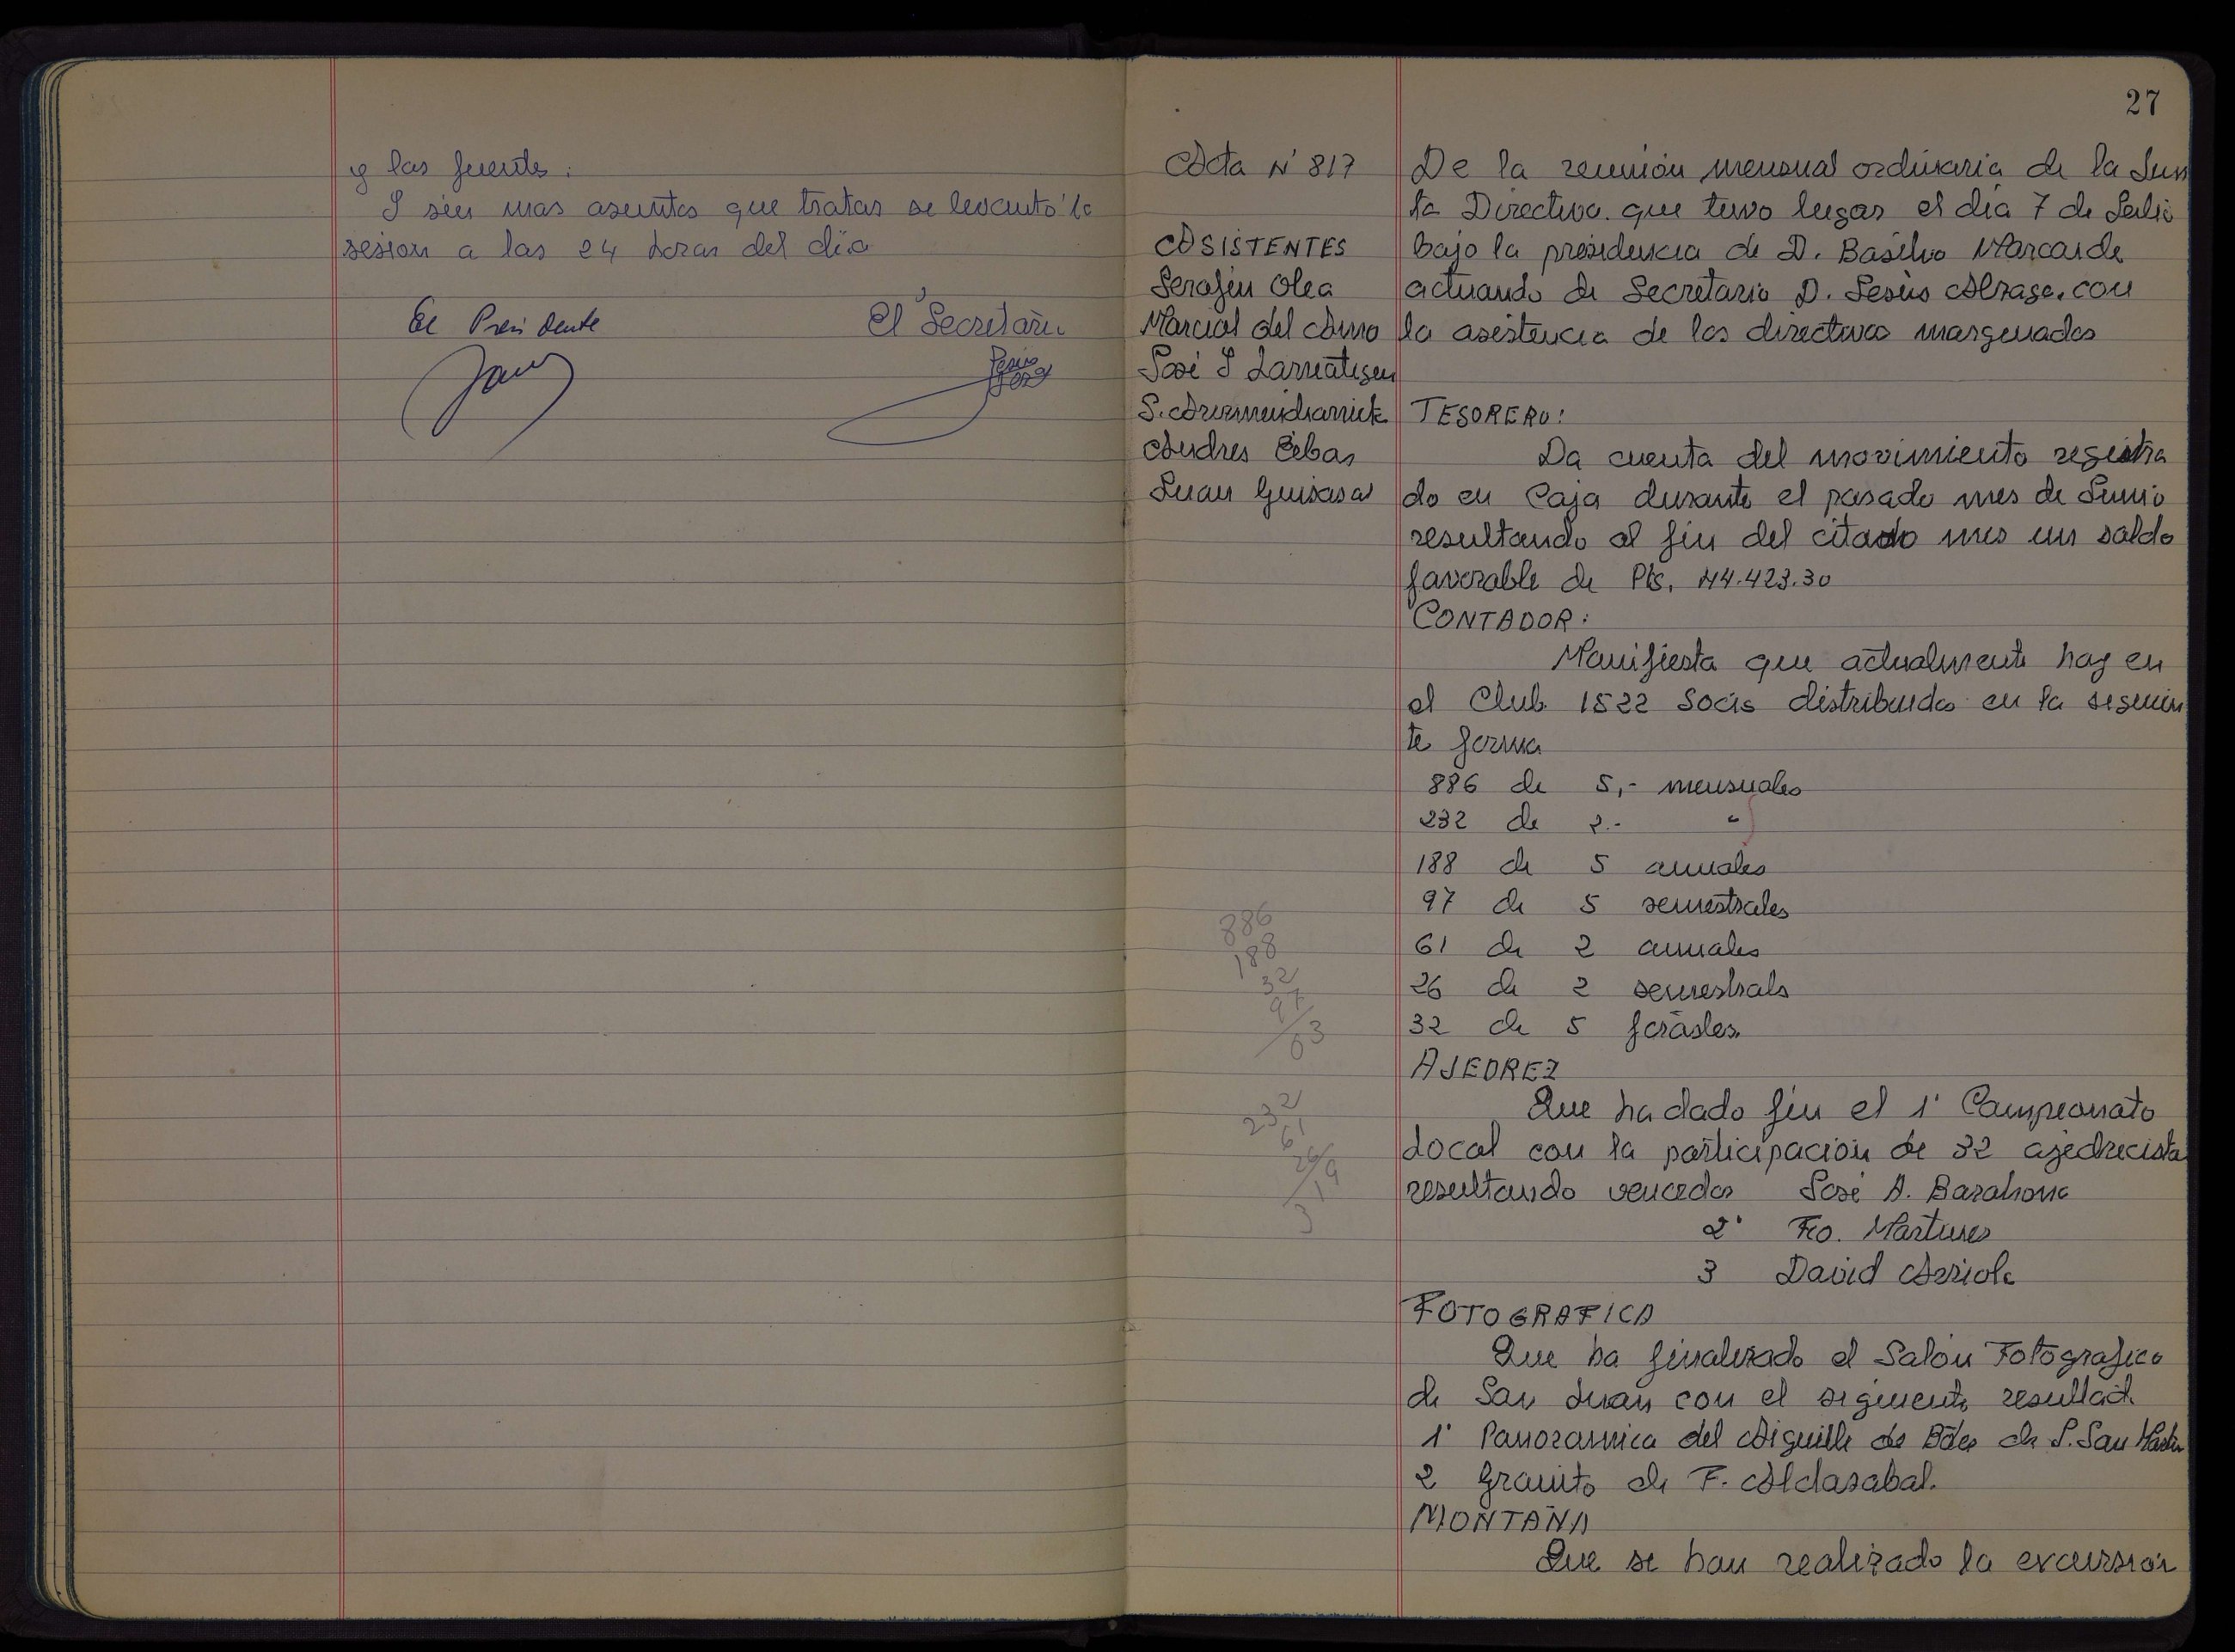 y las fuentes.
Y sin mas asuntos que tratar se levantó la
sesion a las 24 horas del dia
El Presidente
El Secretario
27
Acta Nº 817
ASISTENTES
Serafin Olea
Marcial del Amo
José I Larrañaga
Andres Eibar
Juan Guisasa
De la reunión mensual ordinaria de la Jun
ta Directiva que tuvo lugar el dia 7 de Julio
bajo la presidencia de D. Basilio
actuando de Secretario D. Jesús con
la asistencia de los directivos margenados
TESORERO:
Da cuenta del movimiento registra
do en Caja durante el pasado mes de Junio
resultando al fin del citado mes un saldo
favorable de Pts. 44.423.30
CONTADOR:
Manifiesta que actualmente hay en
el Club 1522 Socis distribuidos en la siguien
te forma
886 de 5,- mensuales
232 de 2.- "
188 de 5 anuales
97 de 5 semestrales
61 de 2 anuales
26 de 2 semestrals
32 de 5
886
188
32
97
03
232
61
26
19
3
AJEDREZ
Que ha dado fin el 1º Campeonato
Local con la participación de 32 ajedrecista
resultando vencedor José A. Barahona
2º Fco. Martines
3 David Arriola
FOTOGRAFICA
Que ha finalizado el Salón Fotografico
de San Juan con el siguiente resultad
1º Panoramica del Aiguille de S. San Martin
2 Granito de F. Aldasabal.
MONTAÑA
Que se han realizado la excursión